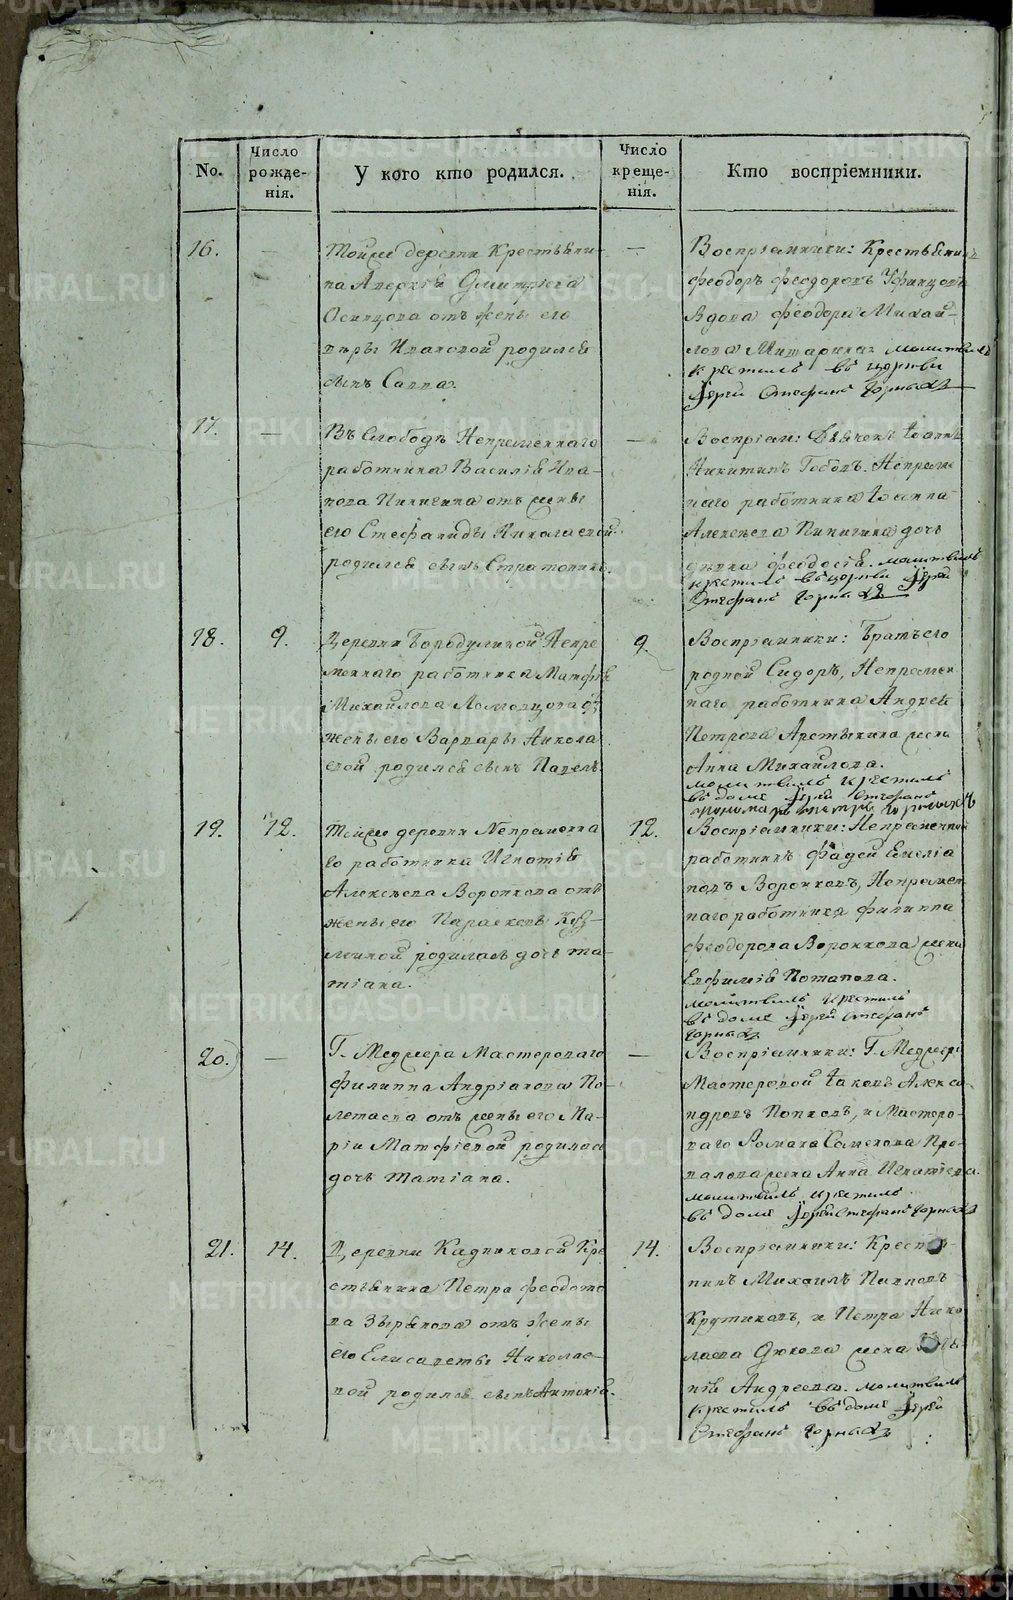 No.
Число рожде-нія.
У кого кто родился.
Число креще-нія.
Кто воспріемники.
16.
—
Тойже деревни Крестьяни-
на Аверкія Дмитріева
Осинцова отъ жены его
Вѣры Ивановой родился
сынъ Савва.
—
Воспріемники: Крестьянинъ
Феодоръ Феодоровъ Уфинцовъ
Вдова Феодора Михай-
лова
молитвилъ
крестилъ въ церкви
Іерей Стефанъ Горныхъ
17.
—
Въ Слободѣ Непременнаго
работника Василія Ива-
нова Пинигина отъ жены
его Стефаниды Николаевой
родился сынъ Стратоникъ.
—
Воспріем: Дьячокъ Іоаннъ
Никитинъ Непремен
наго работника Іоанна
Алексѣева Пинигина дочь
дѣвка Феодосія. молитвилъ
крестилъ въ церкви Іерей
Стефанъ Горныхъ
18.
9.
Деревни Бородулиной Непре
меннаго работника Матфѣя
Михайлова Ломовцова отъ
жены его Варвары Никола
евой родился сынъ Павелъ.
9.
Воспріемники: Братъ его
родной Сидоръ, Непремен
наго работника Андрея
Петрова жена
Анна Михайлова.
молитвилъ крестилъ
въ доме Іерей Стефанъ
19.
12.
Тойже деревни Непременна
го работника Игнатія
Алексѣева Воронкова отъ
жены его Параскевы Куз-
миной родилась дочь Та-
тіана.
12.
Воспріемники: Непременной
работникъ Фадей Емеліа
новъ Воронковъ, Непремен-
наго работника Филиппа
Феодорова Воронкова жена
Евфимія Потапова.
молитвилъ крестилъ
въ доме Іерей Стефанъ
Горныхъ
20.
—
Г. Медмера Мастероваго
Филиппа Андріанова По-
летаева отъ жены его Ма-
ріи Матфіевой родилась
дочь Татіана.
—
Воспріемники: Г. Медмера
Мастеровой Іаковъ Алекса
ндровъ Поповъ, и Мастеро-
ваго Романа Семенова Про-
валова жена Анна Игнатіева.
молитвилъ крестилъ
въ доме Іерей Стефанъ Горныхъ
21.
14.
Деревни Кадниковой Кре
стьянина Петра Феодото
ва Зырянова отъ жены
его Елисаветы Николае-
вой родился сынъ Антоній.
14.
Воспріемники: Крестья-
нинъ Михаилъ Ивановъ
Крутиковъ, и Петра Нико
лаева Дюкова жена
Андреева. молитвилъ
крестилъ въ доме Іерей
Стефанъ Горныхъ
METRIKI.GASO-URAL.RU